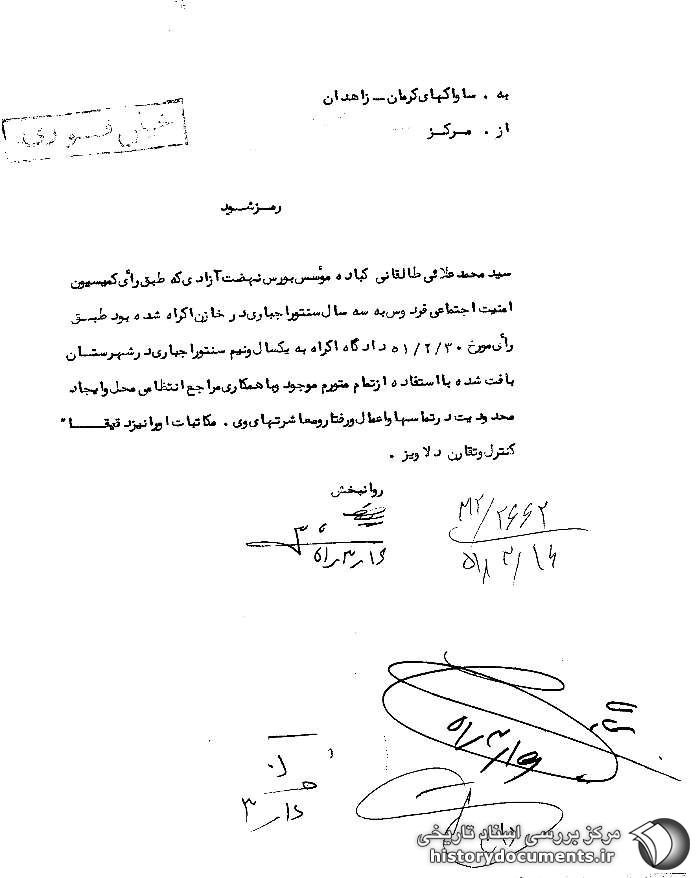 به . ساواکهای کرمان – زاهدان
از . مرکز
خیلی فوری
رمز شود
سید محمد علائی طالقانی کباده مؤسس بورس نهضت آزادی که طبق رأی کمیسیون
امنیت اجتماعی فردوس به سه سال سنتورا جباری در خازن اکراه شده بود طبق
رأی مورخ ۵۱/۲/۳۰ دادگاه اکراه به یکسال و نیم سنتورا جباری در شهرستان
بافت شده با استفاده از تمام متورم موجود و با همکاری مراجع انتظامی محل و ایجاد
محدودیت در تماسها و اعمال و رفتار و معاشرتهای وی . مکاتبات او را نیز دقیقا"
کنترل و تقارن دلاویز .
روانبخش
۱۶ر۳ر۵۱
۳۱۲/۲۶۶۲
۵۱/۳/۱۶
۵۱/۳/۱۶
مرکز بررسی اسناد تاریخی
historydocuments.ir